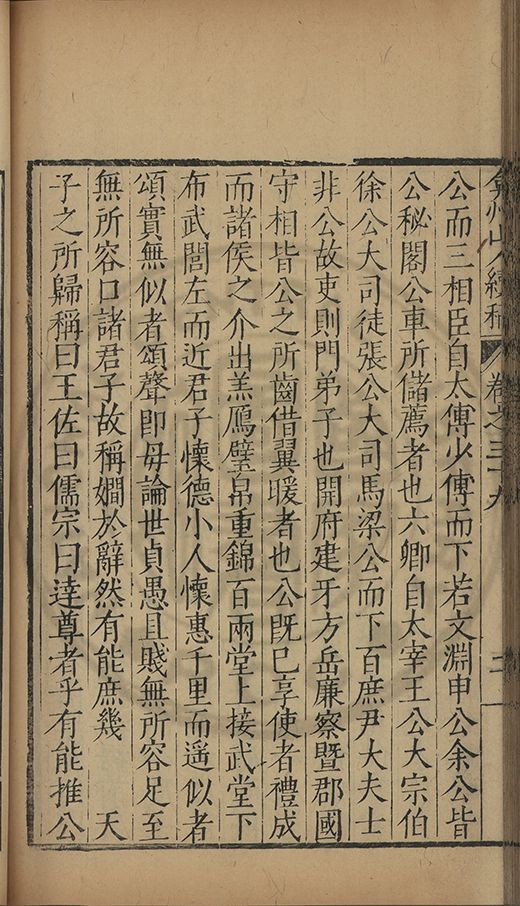 弇州山人續稿 卷之三十九 二
公而三相臣自太傅少傅而下若文淵申公余公皆
公秘閣公車所儲薦者也六卿自太宰王公大宗伯
徐公大司徒張公大司馬梁公而下百庶尹大夫士
非公故吏則門弟子也開府建牙方岳廉察暨郡國
守相皆公之所齒借翼暖者也公既巳享使者禮成
而諸侯之介出羔鴈璧帛重錦百兩堂上接武堂下
布武閭左而近君子懷德小人懷惠千里而遥似者
頌實無似者頌聲即毋論世貞愚且賤無所容足至
無所容口諸君子故稱嫺於辭然有能庶幾 天
子之所歸稱曰王佐曰儒宗曰達尊者乎有能推公